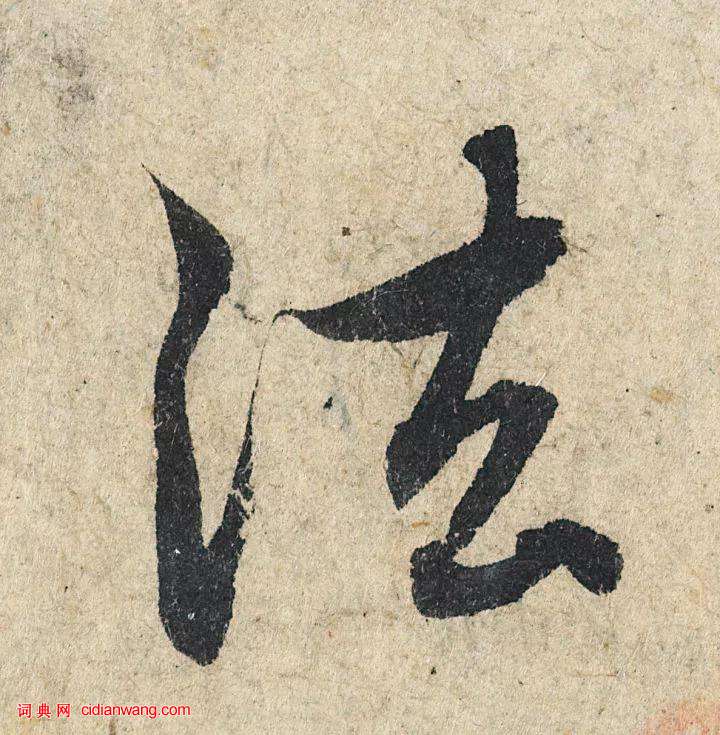 法
词典网 cidianwang.com